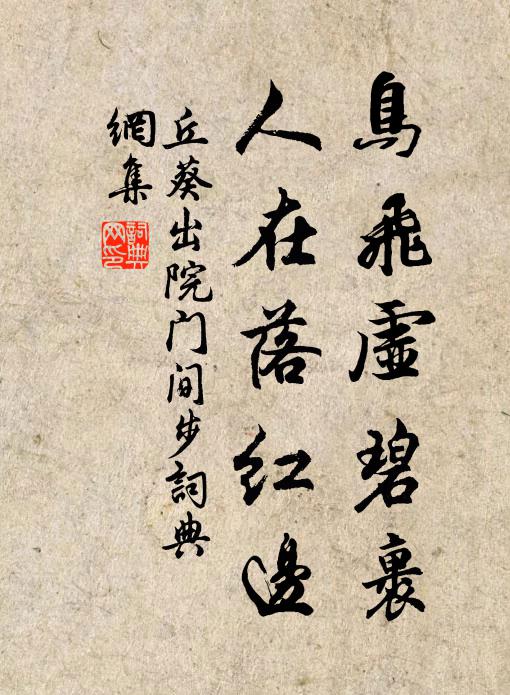 鳥飛虛碧裏
人在落紅邊
丘葵出院门间步詞典
網集
詞典
网印